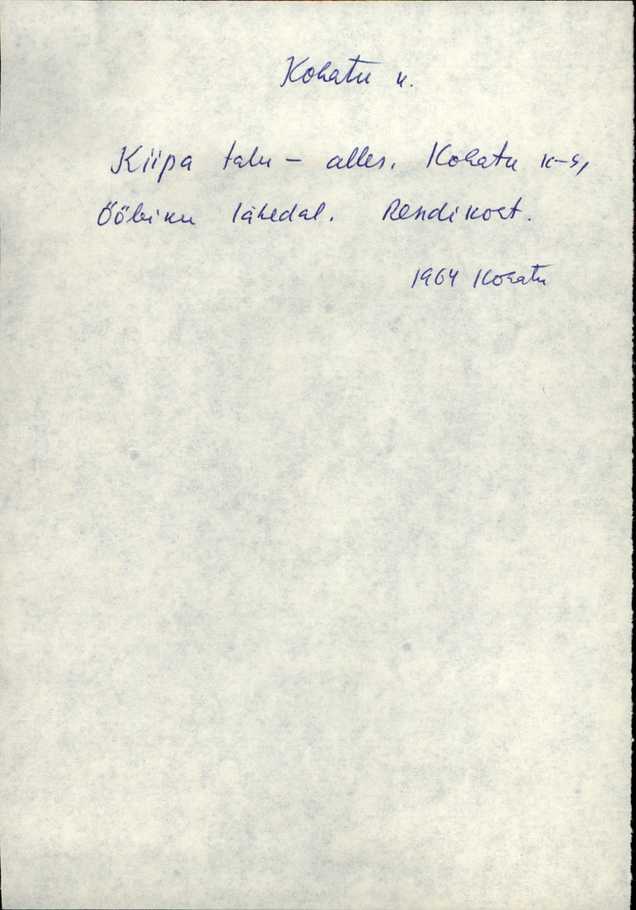 Kohatu k.
Kiipa talu – alles. Kohatu k-s,
Ööbiku lähedal. Rendikoht.
1964 Kohatu